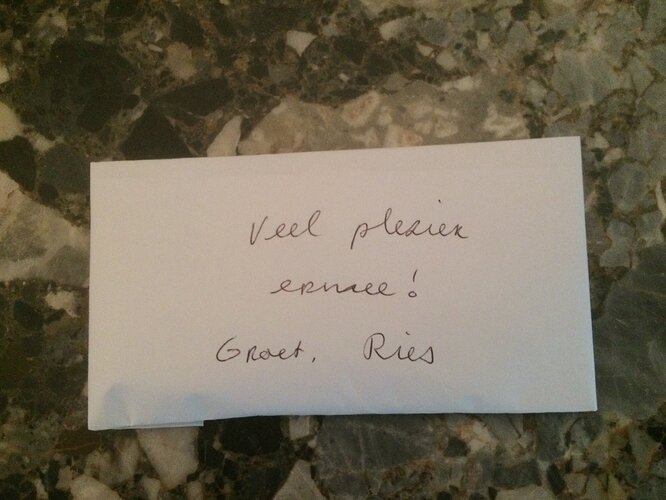 Veel plezier
ermee!
Groet, Ries